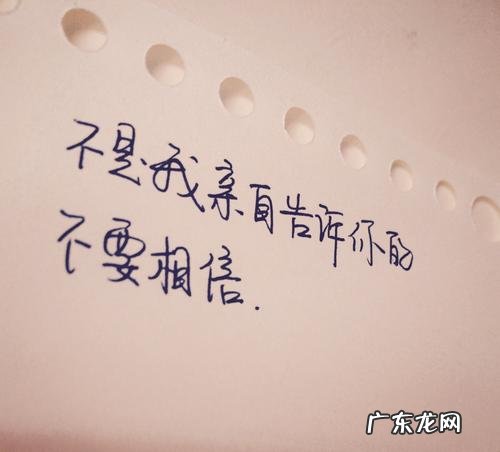 不是我亲自告诉你的
不要相信.
广东龙网